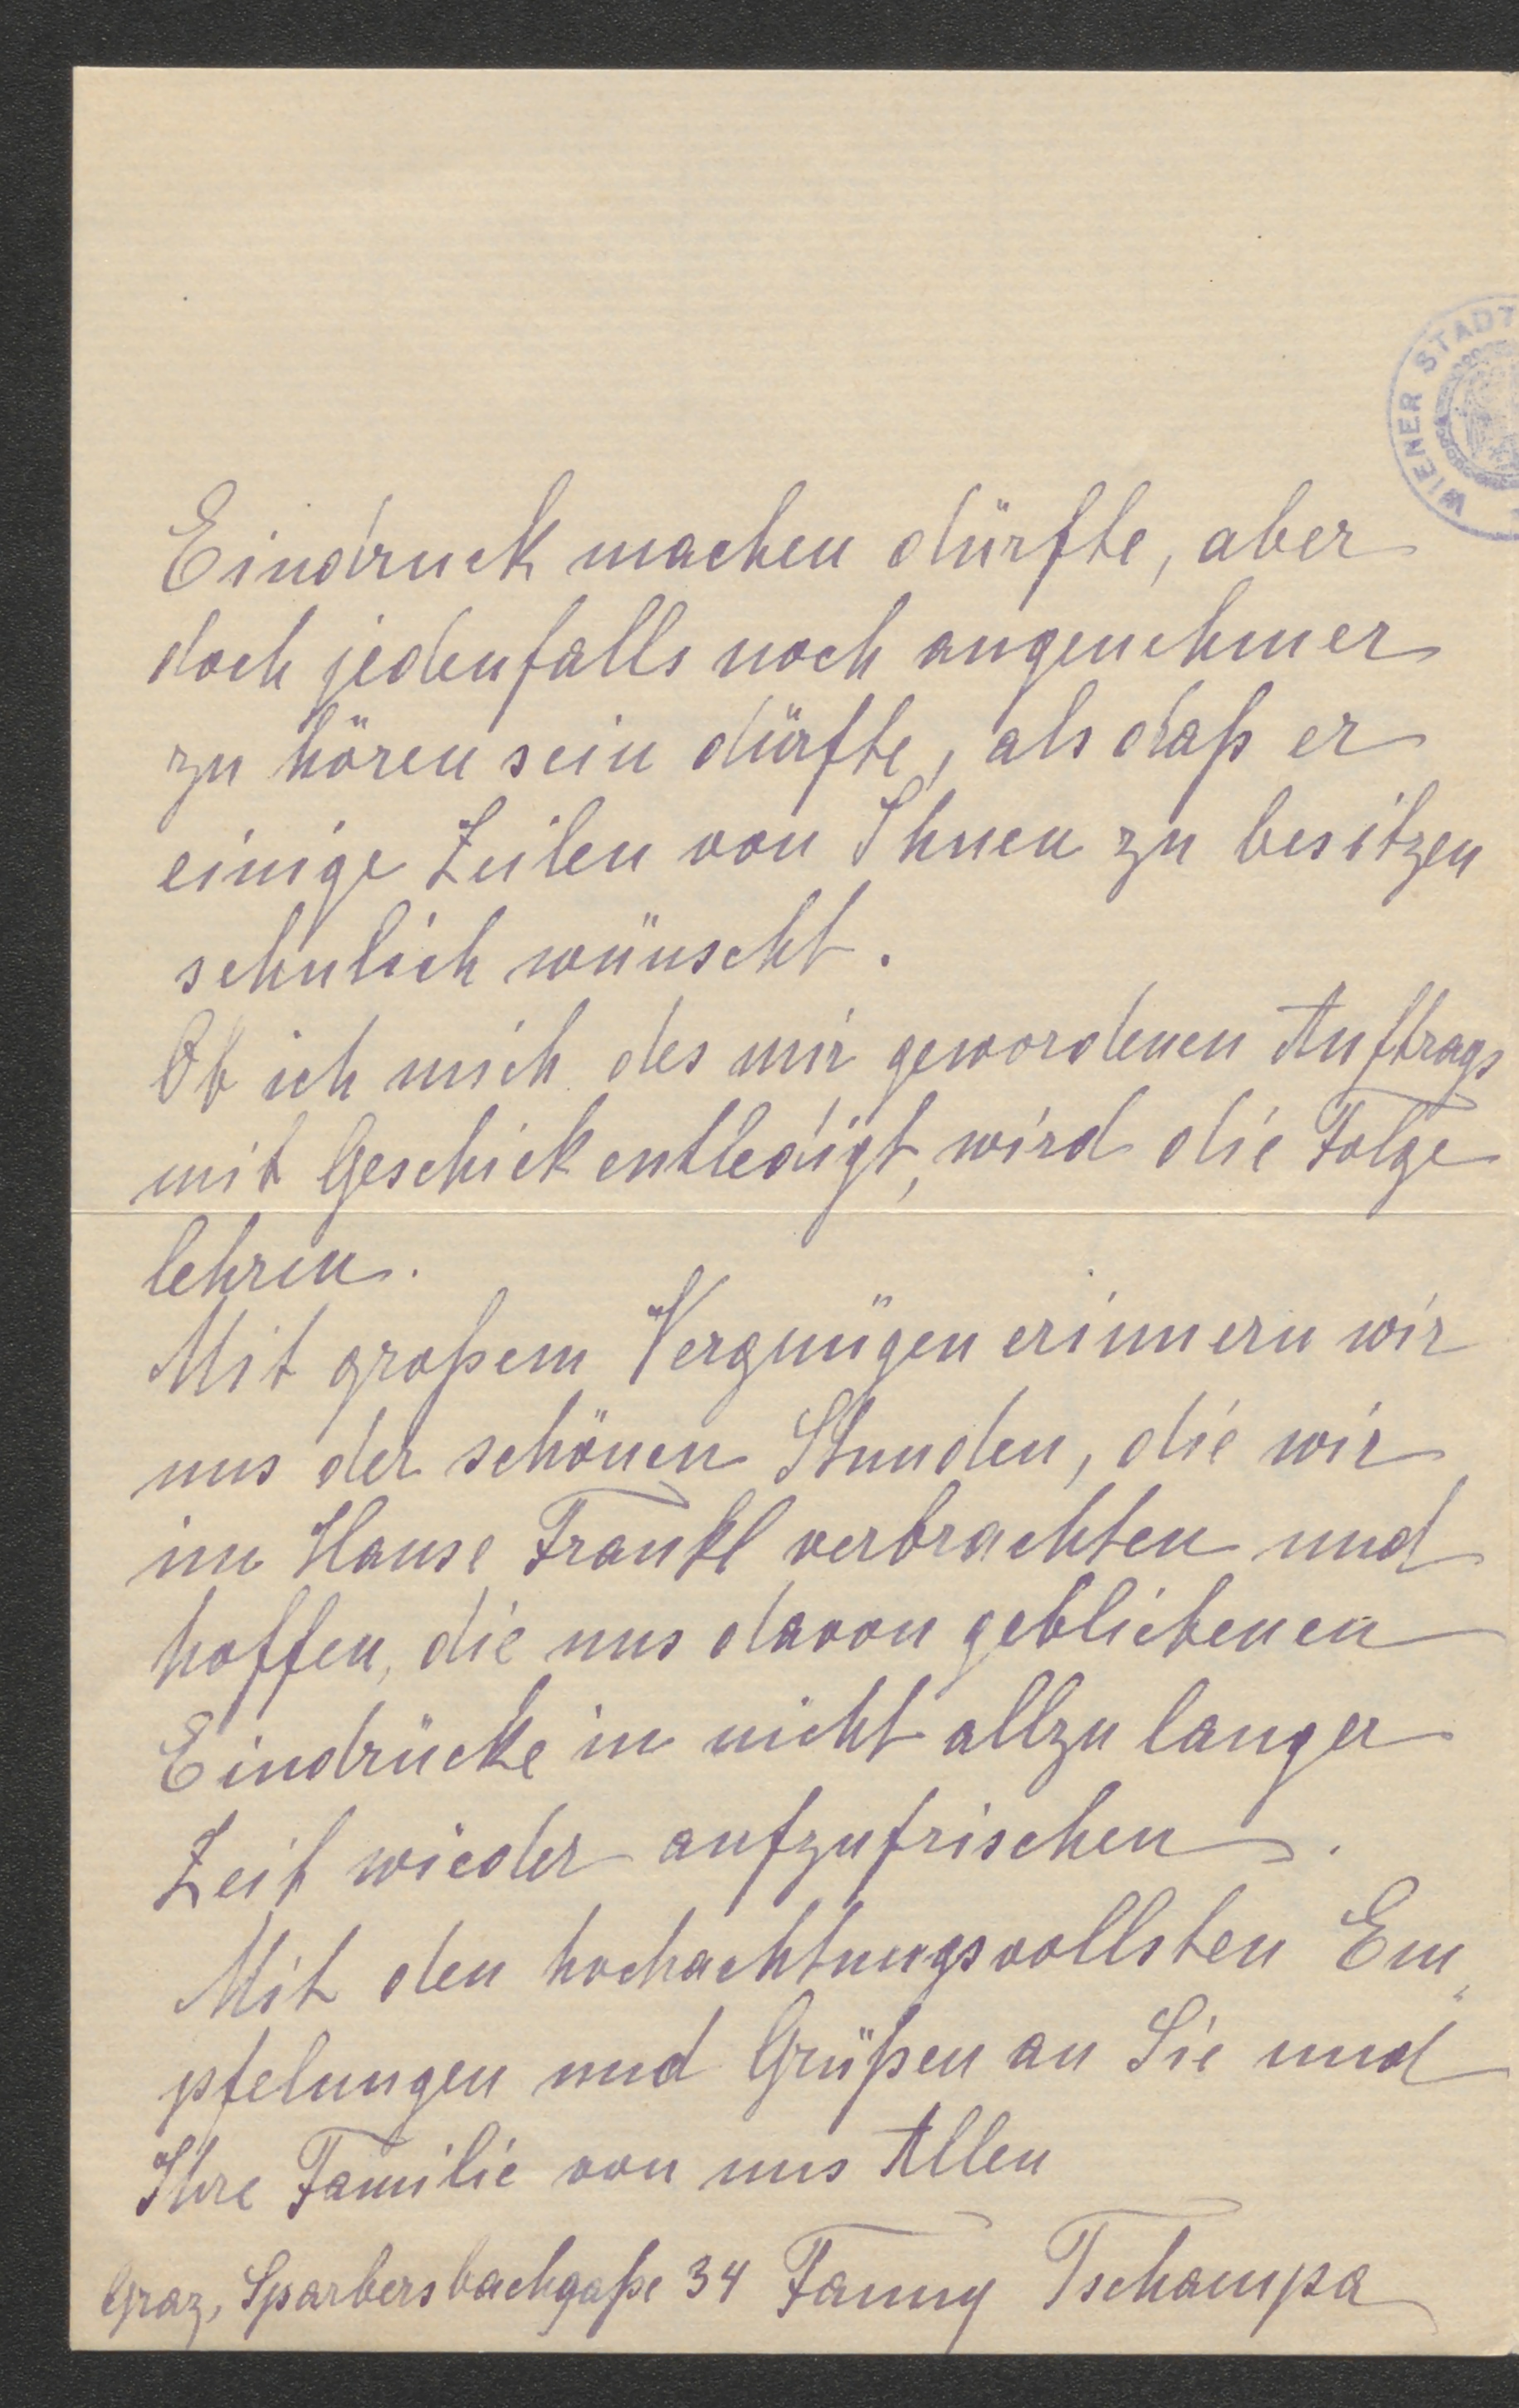 WIENER STADT
Eindruck machen dürfte, aber
doch jedenfalls noch angenehmer
zu hören sein dürfte, als daß er
einige Zeilen von Ihnen zu besitzen
sehnlich wünscht.
Ob ich mich des mir gewordenen Auftrags
mit Geschick entledigt, wird die Folge
lehren.
Mit großem Vergnügen erinnern wir
uns der schönen Stunden, die wir
im Hause Frankl verbrachten und
hoffen, die uns davon gebliebenen
Eindrücke in nicht allzu langer
Zeit wieder aufzufrischen.
Mit den hochachtungsvollsten Em„
pfelungen und Grüßen an Sie und
Ihre Familie von uns Allen
Graz, Sparbersbachgaße 34 Fanny Tschampa